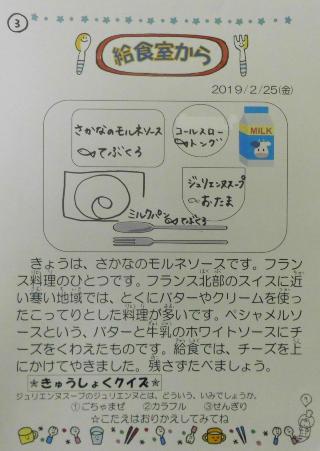 ③
給食室から
2019/2/25(金)
さかなのモルネソース
てぶくろ
コールスロー
トング
MILK
ジュリエンヌスープ
おたま
ミルクパン
てぶくろ
きょうは、さかなのモルネソースです。フラン
ス料理のひとつです。フランス北部のスイスに近
い寒い地域では、とくにバターやクリームを使っ
たこってりとした料理が多いです。ベシャメルソ
ースという、バターと牛乳のホワイトソースにチ
ーズをくわえたものです。給食では、チーズを上
にかけてやきました。残さずたべましょう。
★きゅうしょくクイズ★
ジュリエンヌスープのジュリエンヌとは、どういう、いみでしょうか。
①ごちゃまぜ ②カラフル ③せんぎり
☆こたえはおりかえしてみてね